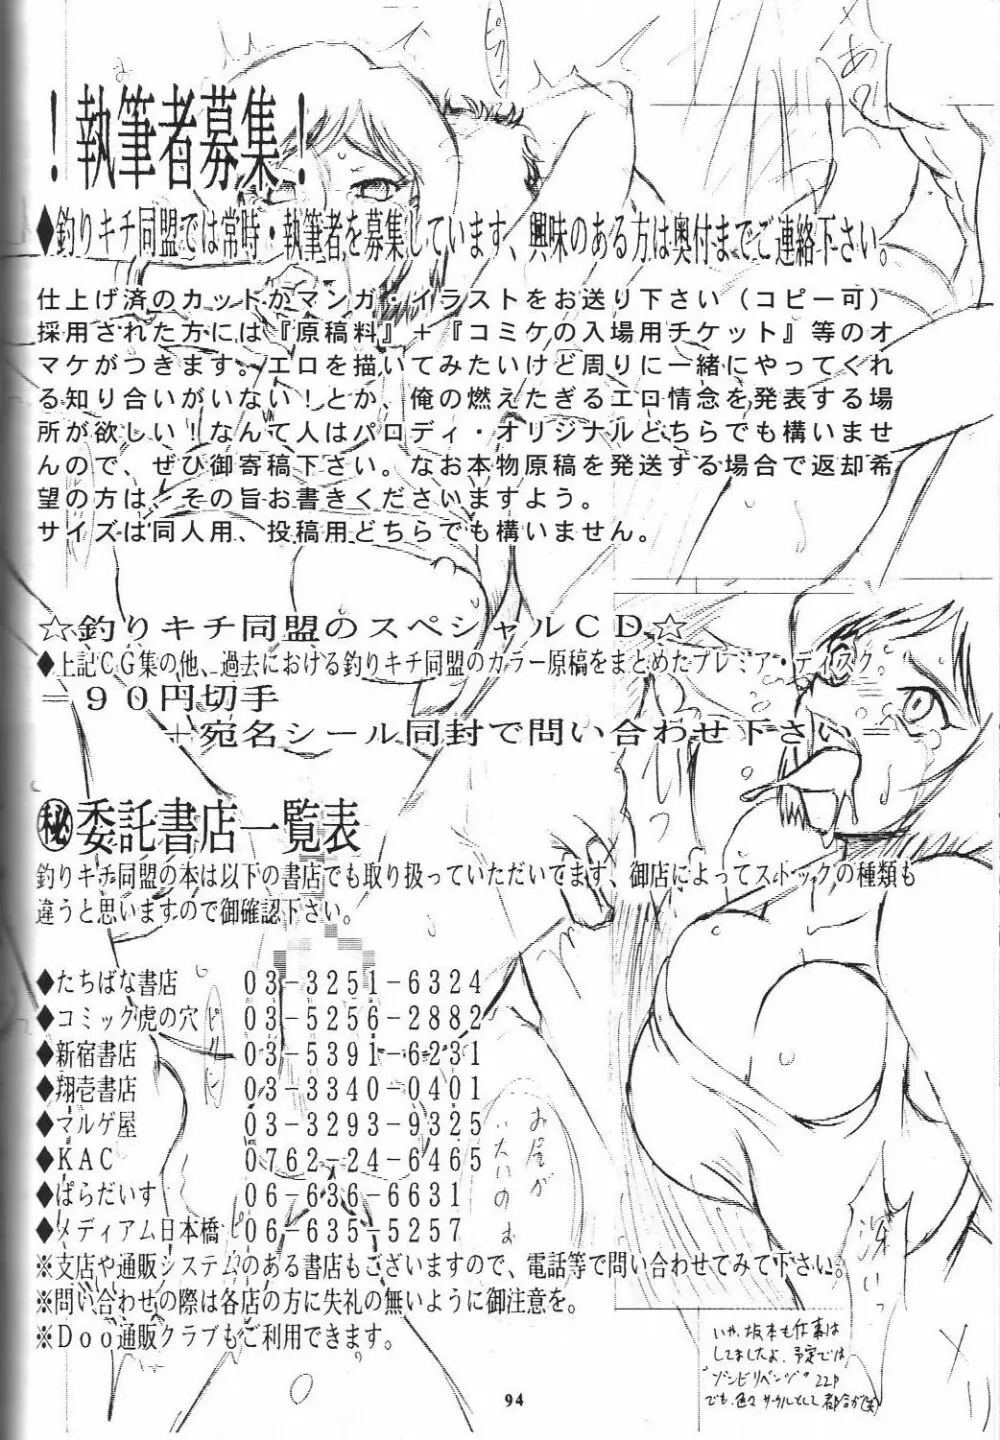 ！執筆者募集！
◆釣りキチ同盟では常時・執筆者を募集しています、興味のある方は奥付までご連絡下さい。
仕上げ済のカットかマンガ・イラストをお送り下さい（コピー可）
採用された方には『原稿料』＋『コミケの入場用チケット』等のオ
マケがつきます。エロを描いてみたいけど周りに一緒にやってくれ
る知り合いがいない！とか、俺の燃えたぎるエロ情念を発表する場
所が欲しい！なんて人はパロディ・オリジナルどちらでも構いませ
んので、ぜひ御寄稿下さい。なお本物原稿を発送する場合で返却希
望の方は、その旨お書きくださいますよう。
サイズは同人用、投稿用どちらでも構いません。
☆釣りキチ同盟のスペシャルＣＤ☆
◆上記ＣＧ集の他、過去における釣りキチ同盟のカラー原稿をまとめたプレミア・ディスク
＝９０円切手
＋宛名シール同封で問い合わせ下さい＝
㊙委託書店一覧表
釣りキチ同盟の本は以下の書店でも取り扱っていただいてます、御店によってストックの種類も
違うと思いますので御確認下さい。
◆たちばな書店 03-3251-6324
◆コミック虎の穴 03-5256-2882
◆新宿書店 03-5391-6231
◆翔壱書店 03-3340-0401
◆マルゲ屋 03-3293-9325
◆KAC 0762-24-6465
◆ぱらだいす 06-636-6631
◆メディアム日本橋 06-635-5257
※支店や通販システムのある書店もございますので、電話等で問い合わせてみて下さい。
※問い合わせの際は各店の方に失礼の無いように御注意を。
※Ｄｏｏ通販クラブもご利用できます。
おしりが
いたいのぉ
深いっ
いや、坂本も仕事は
してましたよ、予定では
"ゾンビリベンジ" 22P
でも、色々サークルとして都合が(笑)
94